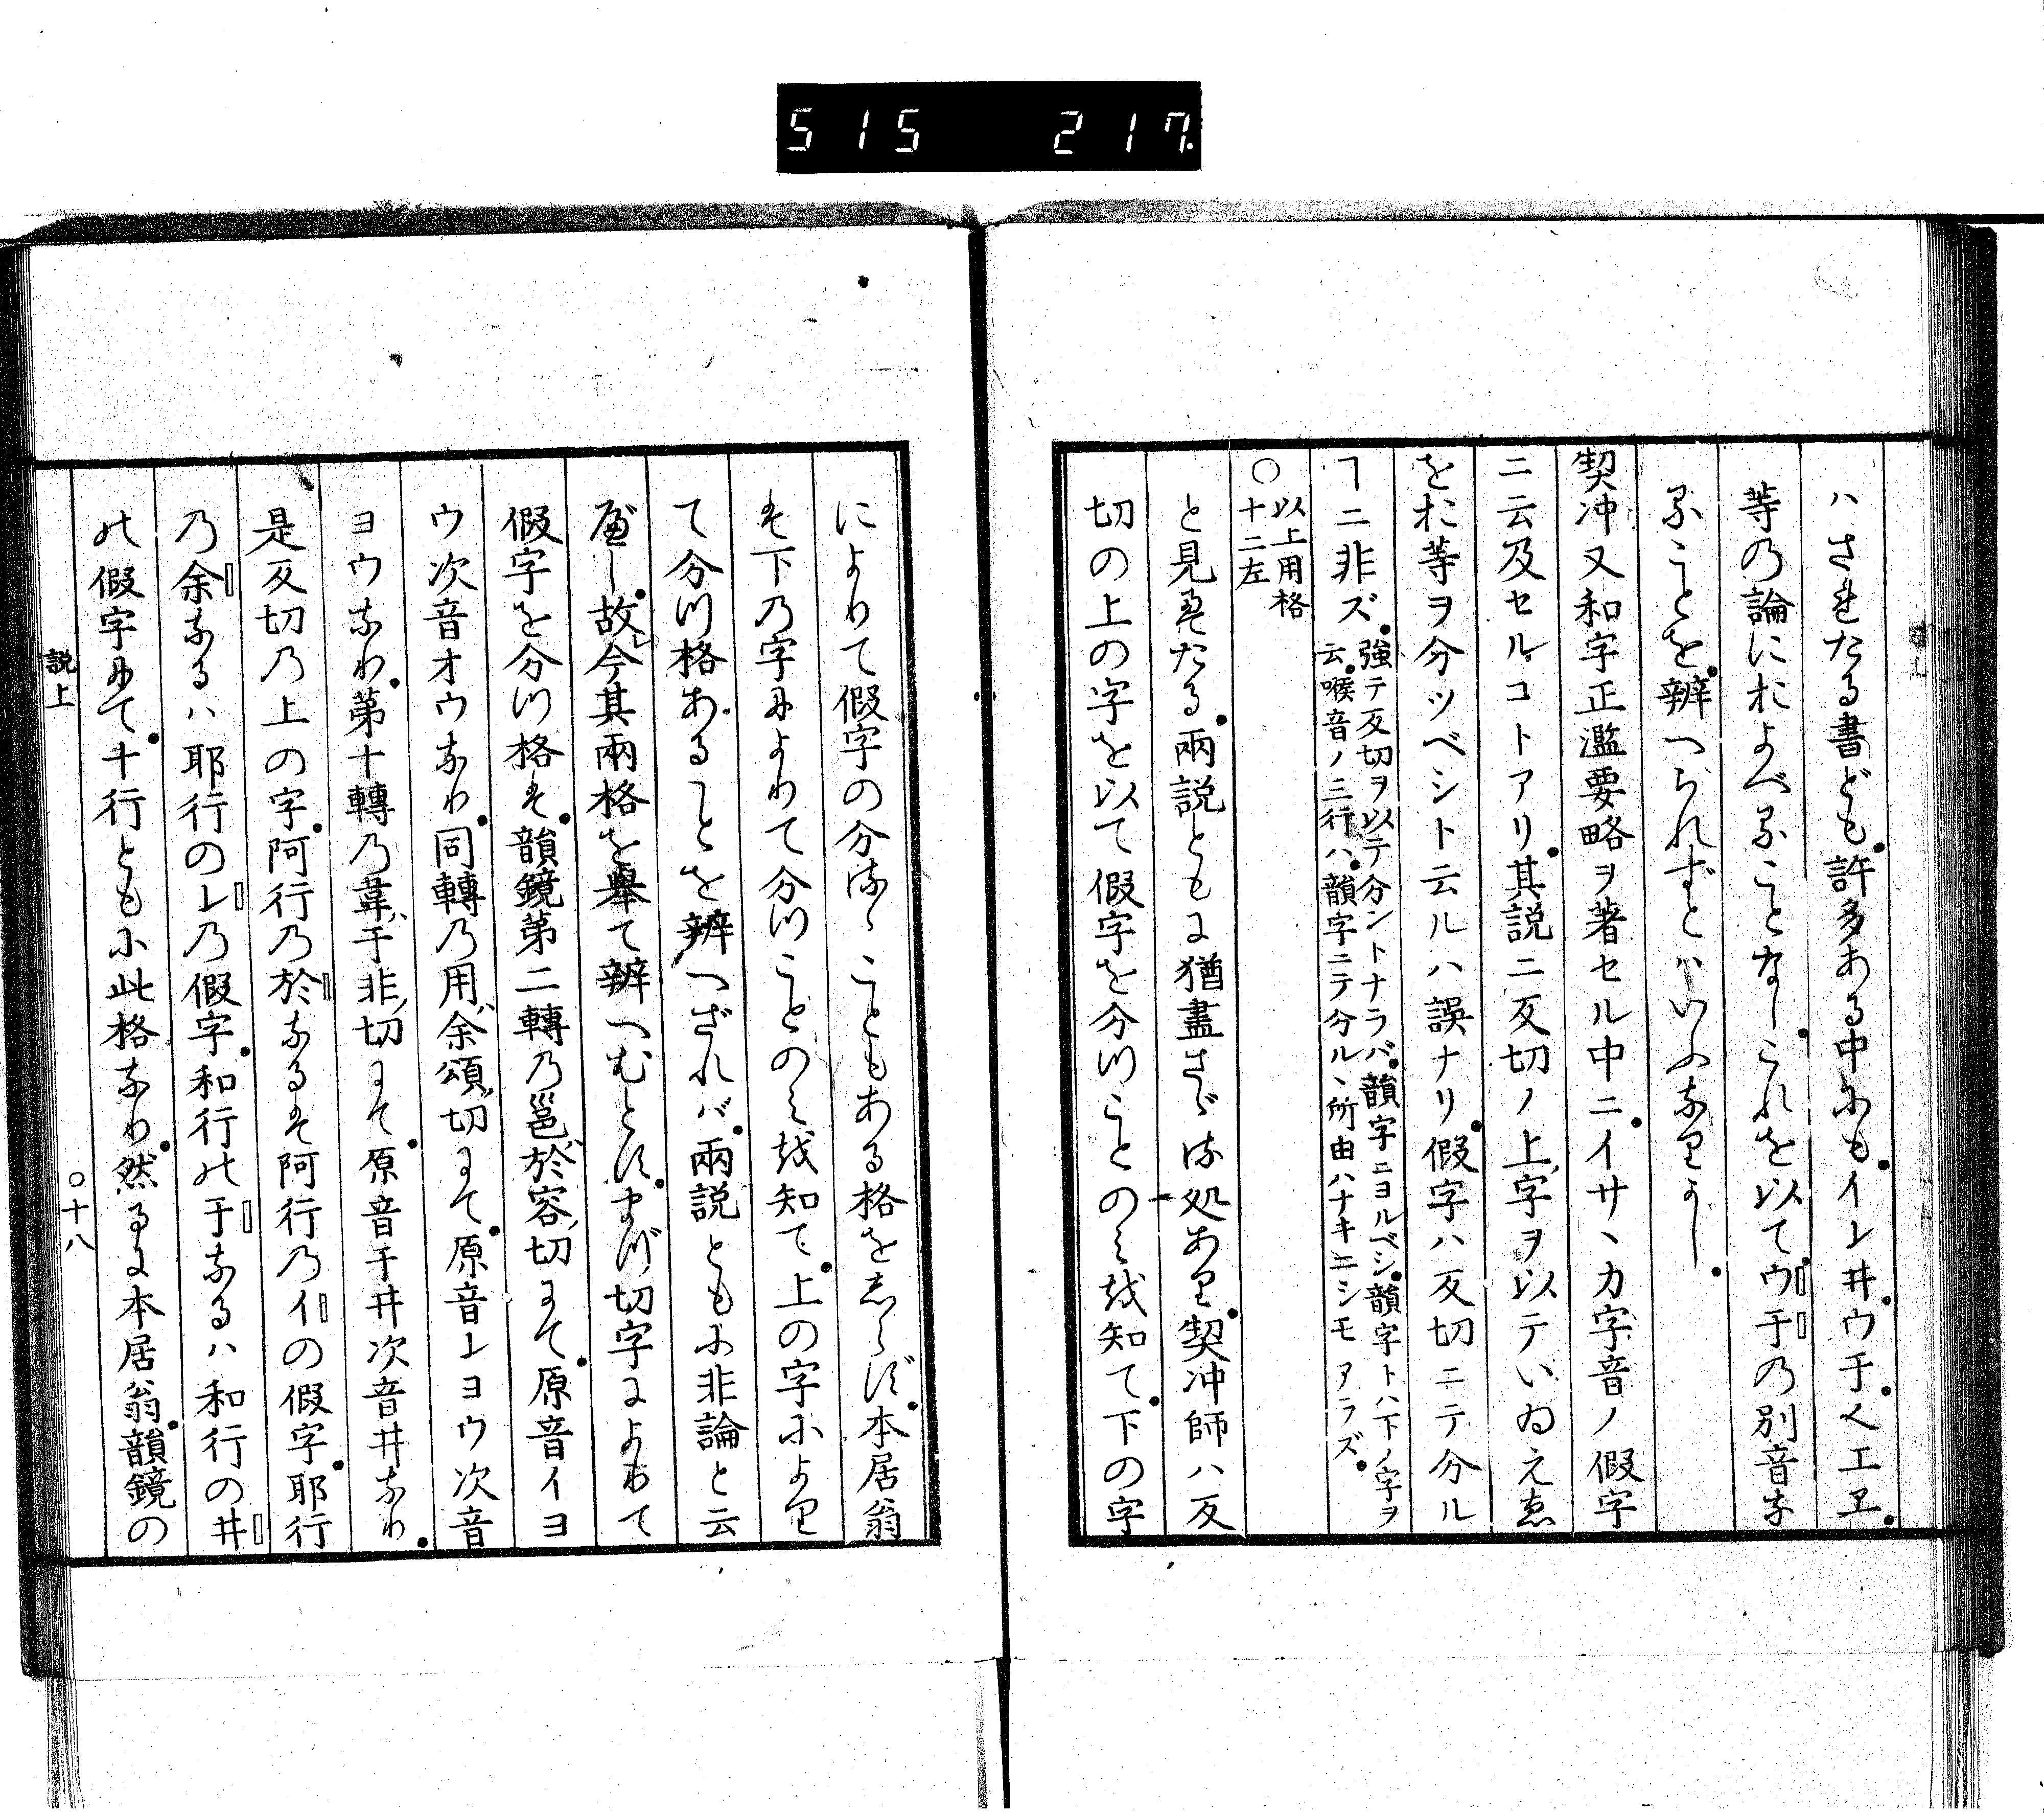 515 217
ハされたる書ども許多ある中にもイレ井ウ于くエヱ
等の論におよべることなしこれを以てウ于の別音な
ることを辨へられずとハいふなりよし
契冲又和字正濫要略ヲ著セル中ニイサヽカ字音ノ假字
ニ云及セルコトアリ其説ニ反切ノ上字ヲ以テいゐえゑ
をお等ヲ分ツベシト云ルハ誤ナリ假字ハ反切ニテ分ル
ヿニ非ズ
強テ反切ヲ以テ分ントナラバ韻字ニヨルベシ韻字トハ下ノ字ヲ
云喉音ノ三行ハ韻字ニテ分ルヽ所由ハナキニシモアラズ
○以上用格
十二左
と見えたる兩説ともに猶盡さゞる処あり契冲師ハ反
切の上の字を以て假字を分つことのミを知て下の字
によりて假字の分るゝこともある格をしらず本居翁
ハ下の字によりて分つことのミを知て上の字により
て分つ格あることを辨へざれバ兩説ともに非論と云
べし故今其兩格を舉て辨へむとすまづ切字によりて
假字を分つ格ハ韻鏡第二轉の邕於容切にて原音イヨ
ウ次音オウなり同轉の用余頌切にて原音レヨウ次音
ヨウなり第十轉の韋于非切にて原音于井次音井なり
是反切の上の字阿行の於なるハ阿行のイの假字耶行
の余なるハ耶行のレの假字和行の于なるハ和行の井
の假字にて十行ともに此格なり然るに本居翁韻鏡の
説上 ○十八